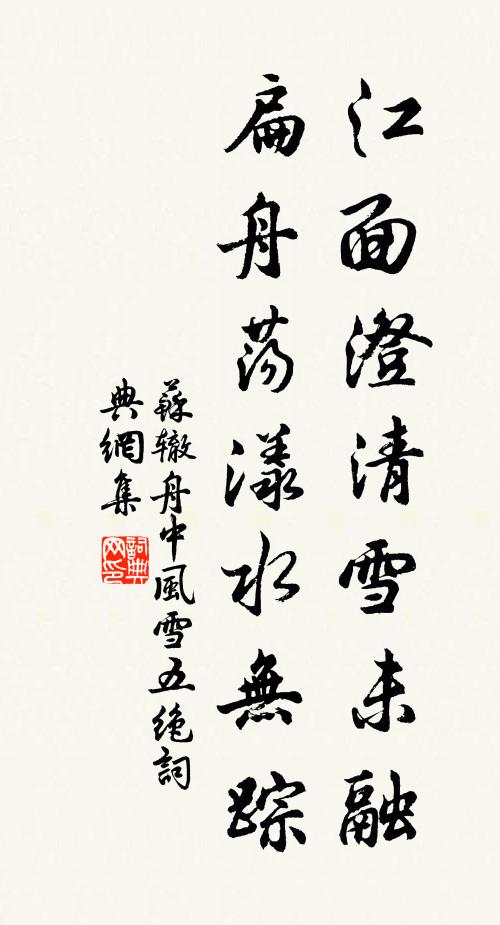 江面澄清雪未融
扁舟荡漾水無踪
蘇辙舟中風雪五绝詞
典網集
詞典
网印